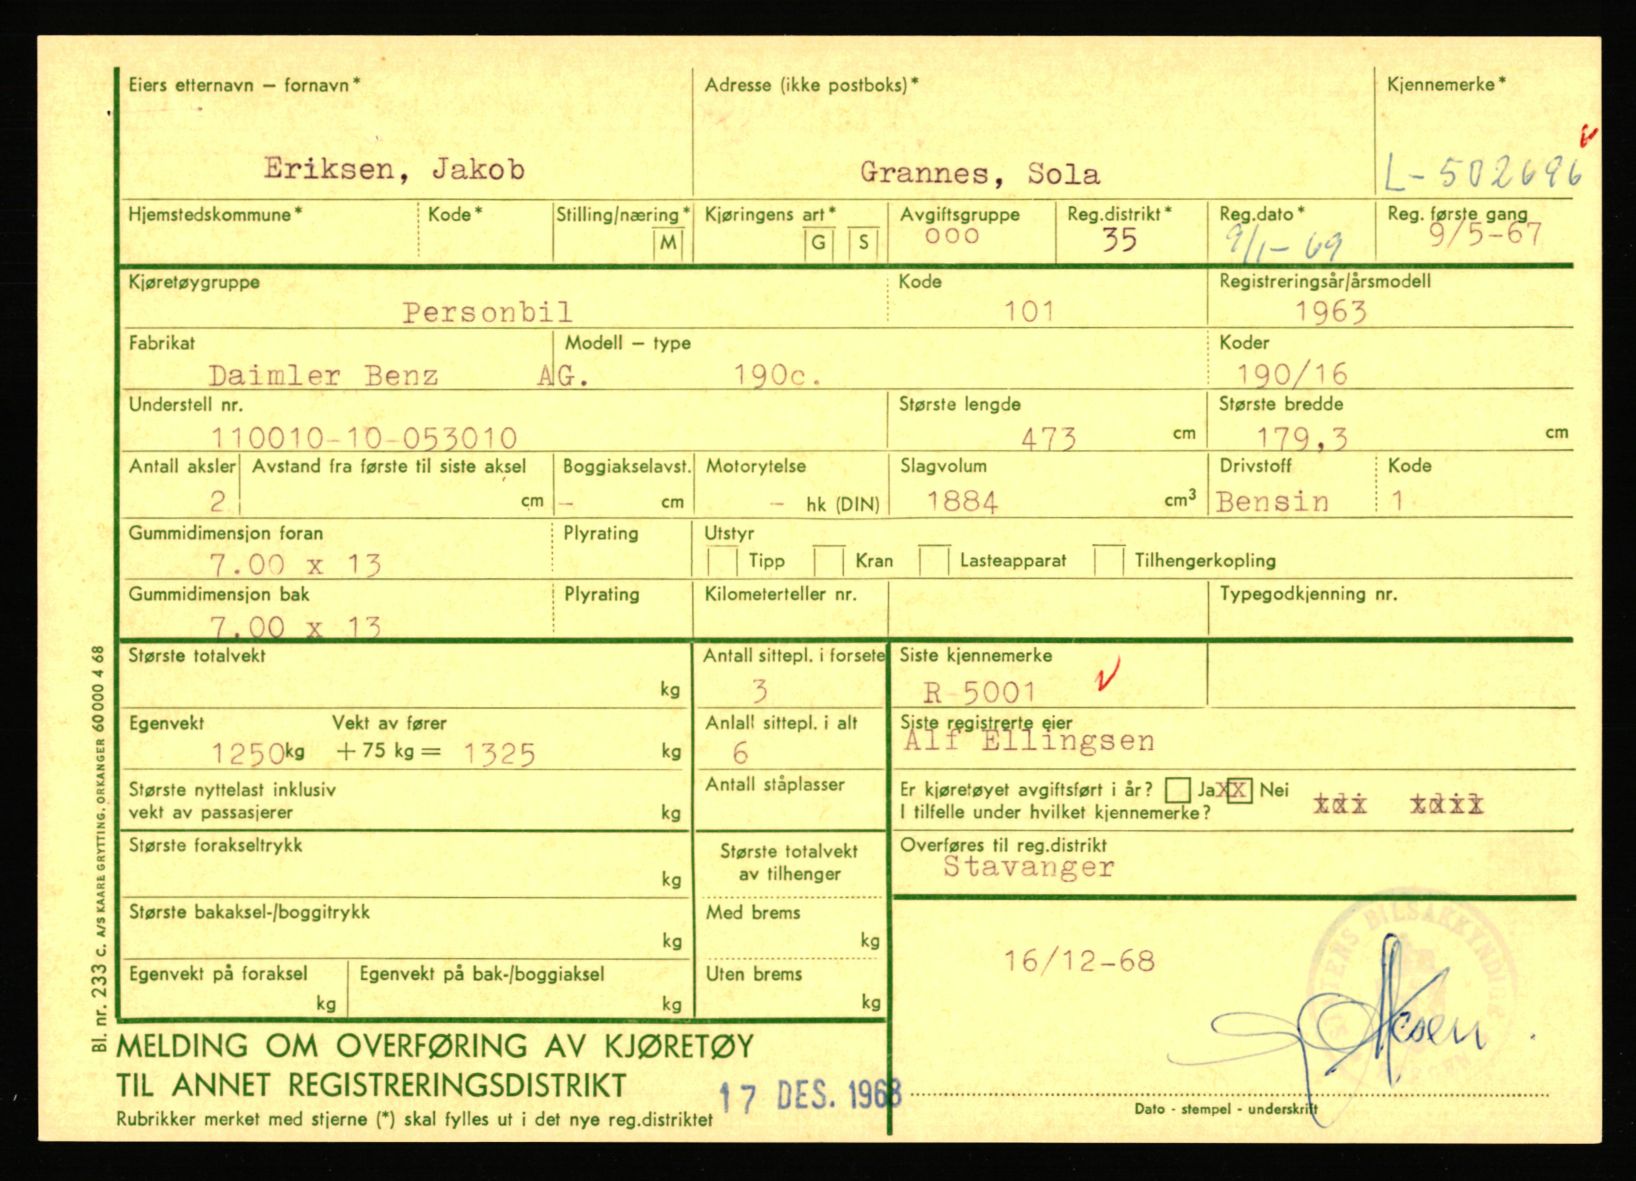 Eiers etternavn – fornavn*
Adresse (ikke postboks)*
Kjennemerke*
Eriksen, Jakob
Grannes, Sola
L-502696
Hjemstedskommune*
Kode*
Stilling/næring*
M
Kjøringens art*
G S
Avgiftsgruppe
000
Reg.distrikt*
35
Reg.dato*
9/1-69
Reg. første gang
9/5-67
Kjøretøygruppe
Personbil
Kode
101
Registreringsår/årsmodell
1963
Fabrikat
Daimler Benz AG.
Modell – type
190c.
Koder
190/16
Understell nr.
110010-10-053010
Største lengde
473 cm
Største bredde
179,3 cm
Antall aksler
2
Avstand fra første til siste aksel
cm
Boggiakselavst.
– cm
Motorytelse
– hk (DIN)
Slagvolum
1884 cm³
Drivstoff
Bensin
Kode
1
Gummidimensjon foran
7.00 x 13
Plyrating
Utstyr
Tipp Kran Lasteapparat Tilhengerkopling
Gummidimensjon bak
7.00 x 13
Plyrating
Kilometerteller nr.
Typegodkjenning nr.
Største totalvekt
kg
Antall sittepl. i forsete
3
Siste kjennemerke
R-5001
Egenvekt
Vekt av fører
1250 kg + 75 kg = 1325 kg
Anlall sittepl. i alt
6
Siste registrerte eier
Alf Ellingsen
Største nyttelast inklusiv
vekt av passasjerer kg
Antall ståplasser
Er kjøretøyet avgiftsført i år? Ja XX Nei
I tilfelle under hvilket kjennemerke?
Største forakseltrykk
kg
Største totalvekt
av tilhenger
Overføres til reg.distrikt
Stavanger
Største bakaksel-/boggitrykk
kg
Med brems
kg
Egenvekt på foraksel
kg
Egenvekt på bak-/boggiaksel
kg
Uten brems
kg
16/12-68
BILSAKKYNDIGE
MELDING OM OVERFØRING AV KJØRETØY
TIL ANNET REGISTRERINGSDISTRIKT
17 DES. 1968
Rubrikker merket med stjerne (*) skal fylles ut i det nye reg.distriktet
Dato - stempel - underskrift
Bl. nr. 233 C. A/S KAARE GRYTTING. ORKANGER 60000 4 68